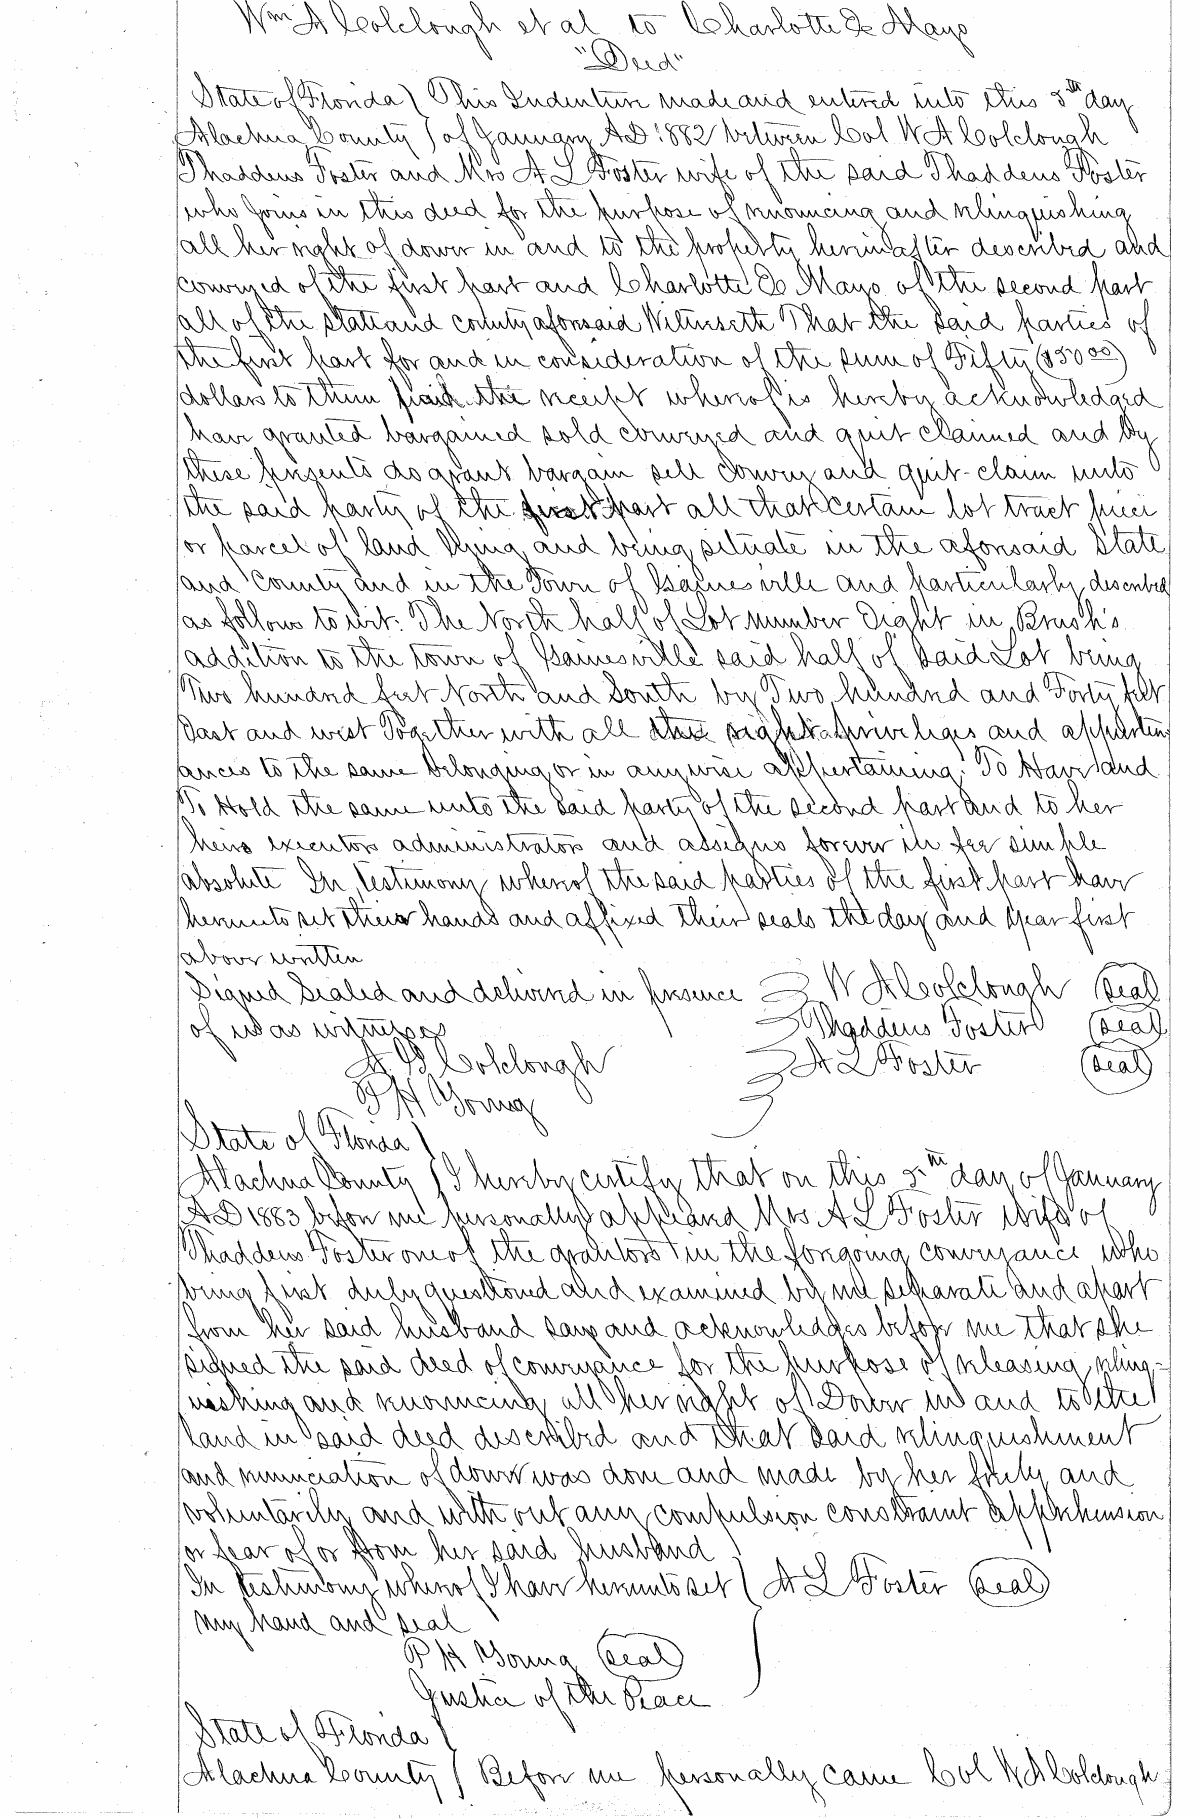 Wm A Colclough et al to Charlotte E Mayo
"Deed"
State of Florida) This Indenture made and entered into this 5th day
Alachua County) of January AD 1882 between Col W A Colclough
Thaddeus Foster and Mrs A L Foster wife of the said Thaddeus Foster
who joins in this deed for the purpose of renouncing and relinquishing
all her right of dower in and to the property hereinafter described and
conveyed of the first part and Charlotte E Mayo of the second part
all of the state and county aforesaid Witnesseth That the said parties of
the first part for and in consideration of the sum of Fifty ($50 00)
dollars to them paid the receipt whereof is hereby acknowledged
have granted bargained sold conveyed and quit claimed and by
these presents do grant bargain sell convey and quit-claim unto
the said party of the first part all that certain lot tract piece
or parcel of land lying and being situate in the aforesaid State
and County and in the Town of Gainesville and particularly described
as follows to wit: The North half of Lot number Eight in Brush's
addition to the town of Gainesville said half of said Lot being
Two hundred feet North and South by Two hundred and Forty feet
East and west Together with all the rights privileges and appurten
ances to the same belonging or in anywise appertaining. To Have and
To Hold the same unto the said party of the second part and to her
heirs executors administrators and assigns forever in fee simple
absolute In testimony whereof the said parties of the first part have
hereunto set their hands and affixed their seals the day and year first
above written
Signed Sealed and delivered in presence W A Colclough (seal)
of us as witnesses Thaddeus Foster (seal)
A G Colclough A L Foster (seal)
P H Young
State of Florida)
Alachua County) I hereby certify that on this 5th day of January
AD 1883 before me personally appeared Mrs A L Foster wife of
Thaddeus Foster one of the grantors in the foregoing conveyance who
being first duly questioned and examined by me separate and apart
from her said husband says and acknowledges before me that she
signed the said deed of conveyance for the purpose of releasing relinq=
uishing and renouncing all her right of Dower in and to the
land in said deed described and that said relinquishment
and renunciation of dower was done and made by her freely and
voluntarily and with out any compulsion constraint apprehension
or fear of or from her said husband
In testimony whereof I have hereunto set ) A L Foster (seal)
my hand and seal
P H Young (seal)
Justice of the Peace
State of Florida)
Alachua County) Before me personally came Col W A Colclough